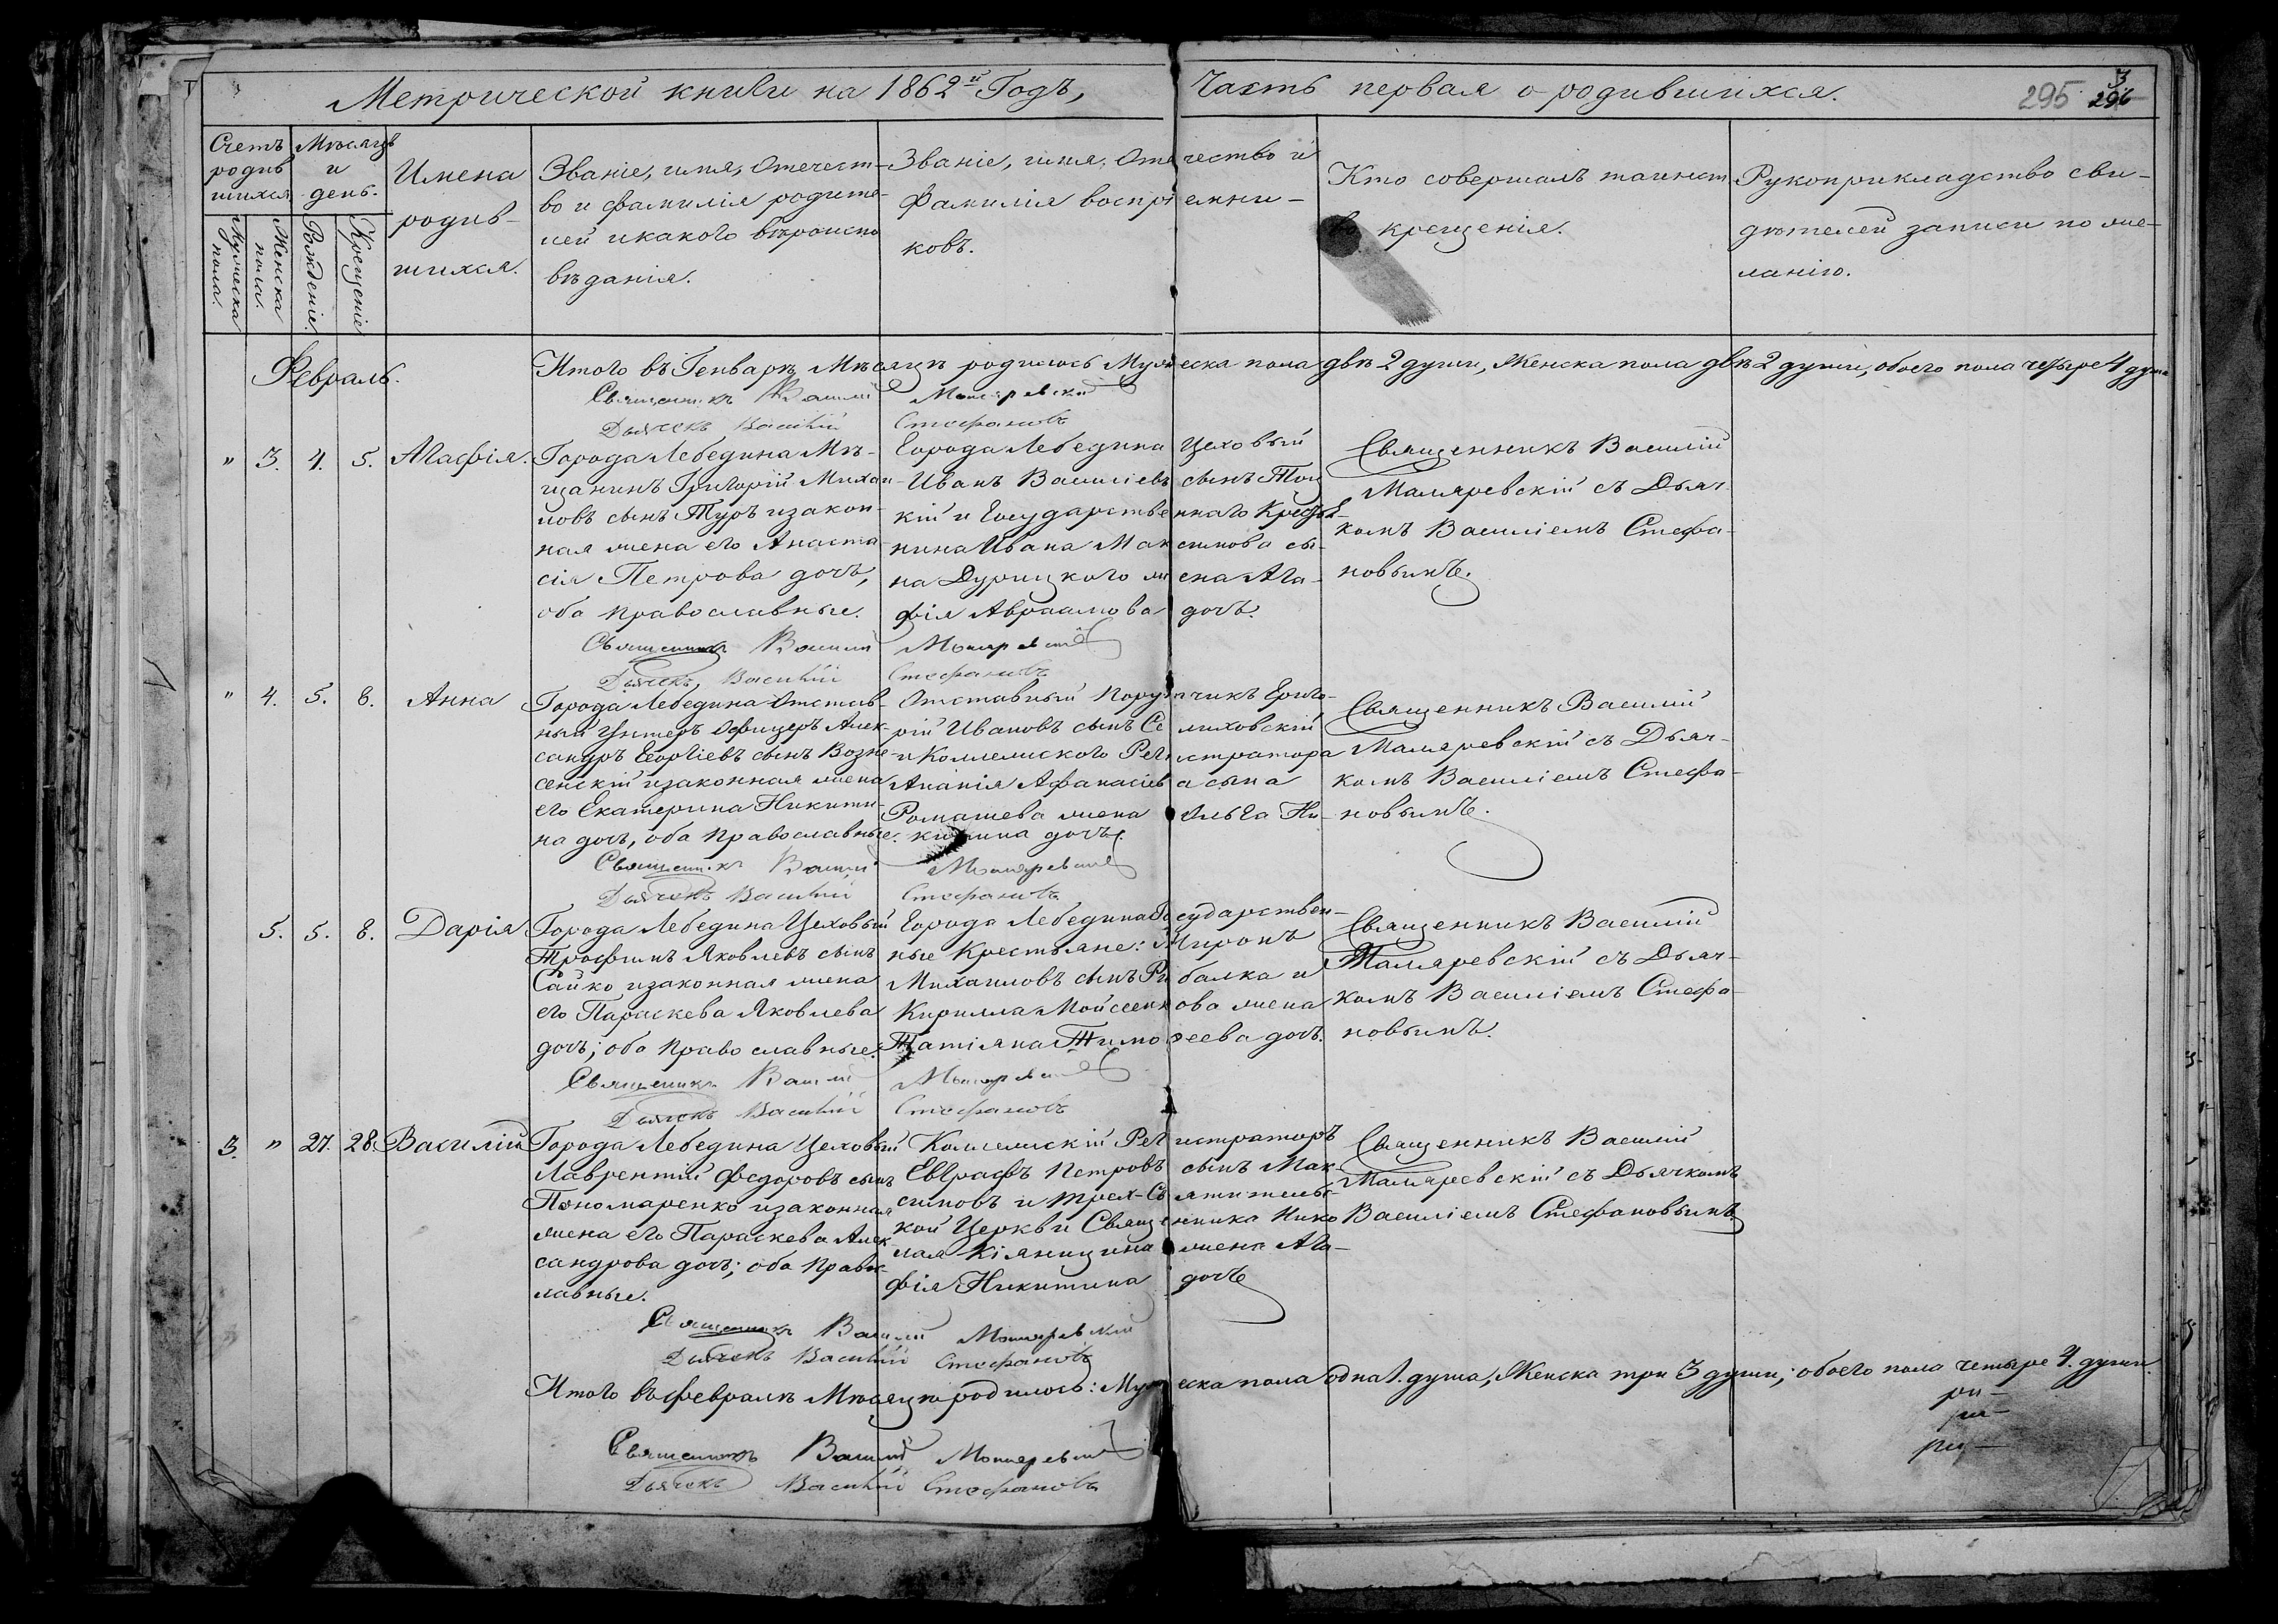 Метрической книги на 1862й Годъ, Часть первая о родившихся. 295 3 296
Счетъ родившихся
Мѣсяцъ и день.
Мужеска пола.
Женска пола.
Рожденіе.
Крещеніе
Имена
родив-
шихся.
Званіе, имя, Отечест-
во и фамилія родите-
лей и какого вѣроиспо
вѣданія.
Званіе, имя, Отечество и
Фамилія воспріемни-
ковъ.
Кто совершалъ таинст
во крещенія.
Рукоприкладство сви-
дѣтелей записи по же-
ланію.
Февраль.
Итого въ Генварѣ Мѣсяцѣ родилось Мужеска пола двѣ 2 души, Женска пола двѣ 2 души, обоего пола четыре 4 души
Священникъ Василій Маляревскій
Дьячекъ Василій Стефановъ
" 3. 4. 5. Агафія.
Города Лебедина Мѣ-
щанинъ Григорій Михаи-
ловъ сынъ Туръ и закон-
ная жена его Анаста-
сія Петрова дочь,
оба православные.
Города Лебедина Цеховый
Иванъ Василіевъ сынъ
кій и Государственнаго Кресть-
нина Ивана Максимова сы-
на Дурицкого жена Ага-
фія Авраамова дочь.
Священникъ Василій
Маляревскій съ Дьяч-
комъ Василіемъ Стефа-
новымъ.
Священникъ Василій Маляревскій
Дьячекъ Василій Стефановъ
" 4. 5. 8. Анна
Города Лебедина Отстав-
ный Унтеръ Офицеръ Алек-
сандръ Георгіевъ сынъ Возне-
сенскій и законная жена
его Екатерина Никити-
на дочь, оба Православные.
Отставный Поручикъ Григо-
рій Ивановъ сынъ Селиховскій
и Коллежского Регистратора
Ананія Афанасіева сына
Ромашева жена Ольга Ни-
китина дочь.
Священникъ Василій
Маляревскій съ Дьяч-
комъ Василіемъ Стефа-
новымъ.
Священникъ Василій Маляревскій
Дьячекъ Василій Стефановъ
5. 5. 8. Дарія
Города Лебедина Цеховый
Трофимъ Яковлевъ сынъ
Сайко и законная жена
его Параскева Яковлева
дочь; оба Православные.
Города Лебедина Государствен-
ные Крестьяне: Миронъ
Михаиловъ сынъ Рибалка и
Кирилла Мойсеенкова жена
Татіяна Тимофеева дочь.
Священникъ Василій
Маляревскій съ Дьяч-
комъ Василіемъ Стефа-
новымъ.
Священникъ Василій Маляревскій
Дьячекъ Василій Стефановъ
3. " 27. 28. Василій
Города Лебедина Цеховый
Лаврентій Федоровъ сынъ
Пономаренко и законная
жена его Параскева Алек-
сандрова дочь; оба Правос-
лавные.
Коллежскій Регистраторъ
Евграфъ Петровъ сынъ Мак-
симовъ и Трех-Святительс-
кой Церкви Священника Нико
лая Кіяницина жена Ага-
фія Никитина дочь
Священникъ Василій
Маляревскій съ Дьячкомъ
Василіемъ Стефановымъ
Священникъ Василій Маляревскій
Дьячекъ Василій Стефановъ
Итого въ февралѣ Мѣсяцѣ родилось: Мужеска пола одна 1. душа, Женска три 3 души; обоего пола четыре 4. души.
Священникъ Василій Маляревскій
Дьячекъ Василій Стефановъ